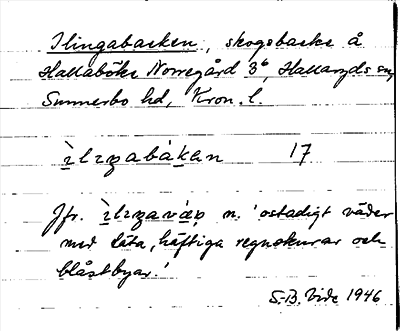 Ilingabacken, skogsbacke å
Hallaböke Norregård 3⁶, Hallaryds sn,
Sunnerbo hd, Kron. l.
17
Jfr. n. 'ostadigt väder
med täta, häftiga regnskurar och
blåstbyar.'
S-B. Vide 1946